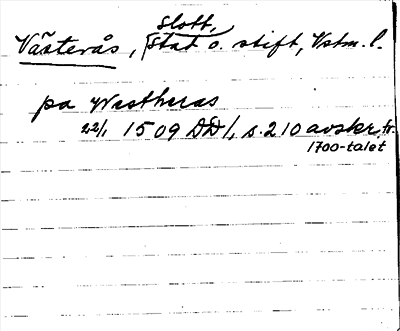 Slott,
Västerås, stad o. stift, Vstm. l.
pa Westheras
22/1 1509 DD1, s. 210 avskr. fr.
1700-talet